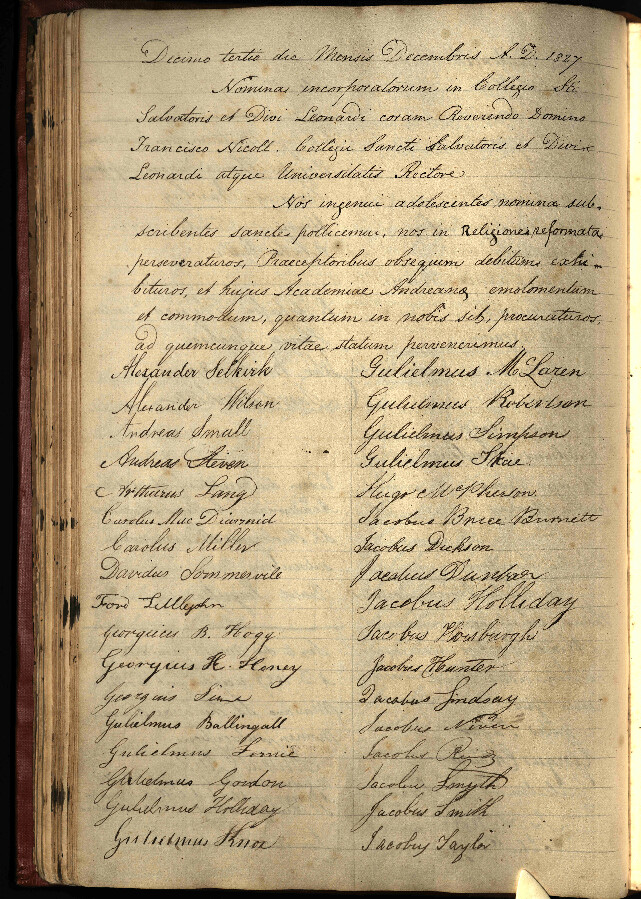 Decimo tertio die Mensis Decembris A. D. 1827
Nomina incorporatorum in Collegio Sti
Salvatoris et Divi Leonardi coram Reverendo Domino
Francisco Nicoll. Collegii Sancti Salvatoris et Divi
Leonardi atque Universitatis Rectore
Nos ingenui adolescentes nomina sub-
scribentes sancte pollicemur, nos in Religione reformata
perseveraturos, Praeceptoribus obsequium debitum exhi-
bituros, et hujus Academiae Andreanae emolumentum
et commodum, quantum in nobis sit, procuraturos,
ad quemcunque vitae statum pervenerimus.
Alexander Selkirk
Alexander Wilson
Andreas Small
Andreas
Arthurus Lang
Carolus Mac Diormid
Carolus Miller
Davidus Sommervile
Ford Littlejohn
Georgius B. Hogg
Georgius H. Heney
Georgius
Gulielmus Ballingall
Gulielmus
Gulielmus Gordon
Gulielmus Holliday
Gulielmus Knox
Gulielmus McLaren
Gulielmus Robertson
Gulielmus Simpson
Gulielmus Skae
Hugo McPherson
Jacobus Bruce Burnett
Jacobus Dickson
Jacobus Dunbar
Jacobus Holliday
Jacobus Horsburgh
Jacobus Hunter
Jacobus Lindsay
Jacobus Niven
Jacobus
Jacobus Smyth
Jacobus Smith
Jacobus Taylor